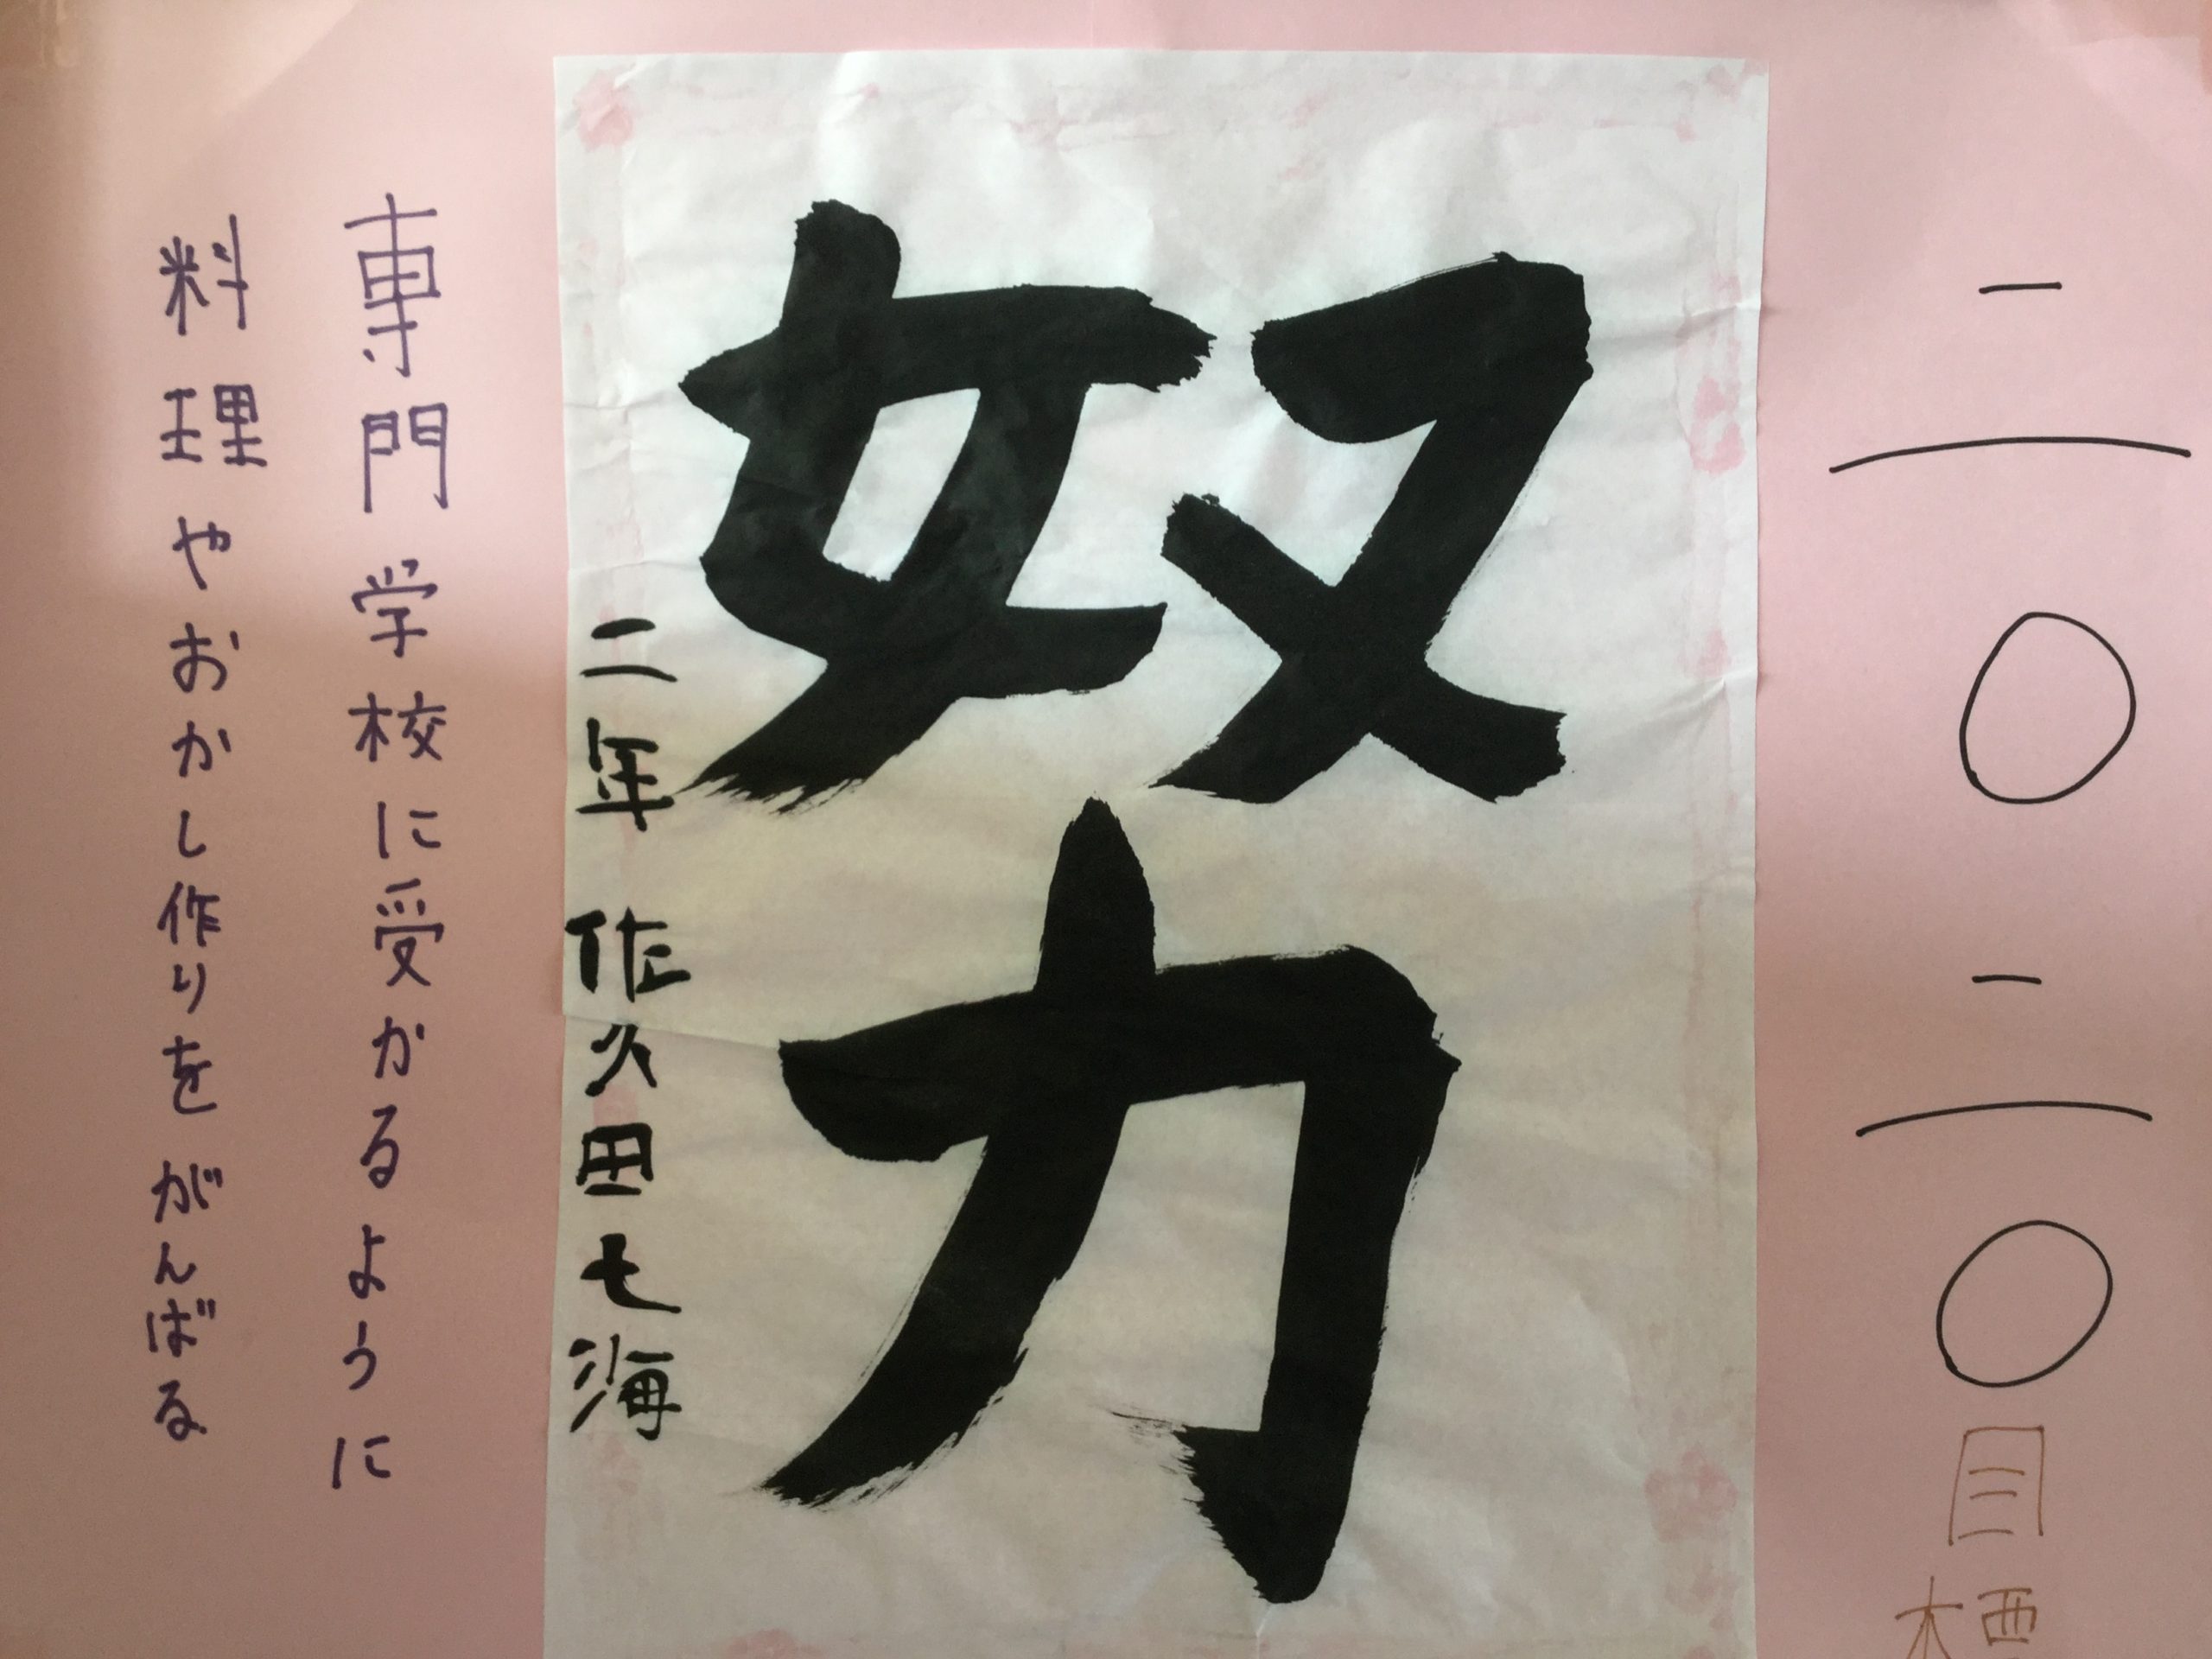 二〇二〇目標
努力
二年 佐久田七海
専門学校に受かるように
料理やおかし作りをがんばる